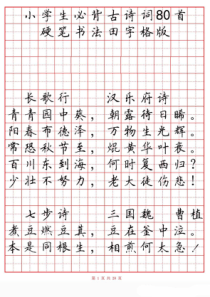 小学生必背古诗词80首
硬笔书法田字格版
长歌行 汉乐府诗
青青园中葵，朝露待日晞。
阳春布德泽，万物生光辉。
常恐秋节至，焜黄华叶衰。
百川东到海，何时复西归？
少壮不努力，老大徒伤悲！
七步诗 三国魏 曹植
煮豆燃豆萁，豆在釜中泣。
本是同根生，相煎何太急！